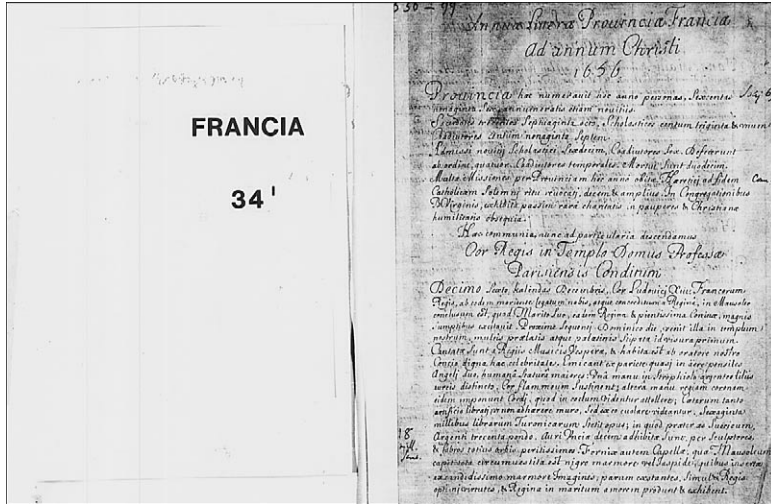 FRANCIA
34 I
Annuæ Litteræ Provinciæ Franciæ
Ad annum Christi
1656
Provincia hæc numeravit hoc anno personas, Sexcentas
nonaginta Sex annumeratis etiam novitiis.
Sacerdotes trecentos Septuaginta octo, Scholasticos centum triginta & unum
Coadiutores Autum nonaginta Septem
Admissi novitij Scholastici Sexdecim, Coadiutores Sex. Defecerunt
ab ordine, quatuor Coadiutores temporales. Mortui Sunt duodecim.
Multæ Missiones per Provinciam hoc anno obitæ. Hæretici ad fidem
Catholicam Solemni ritu revocati, decem & amplius. In Congregationibus
B. Virginis, exhibita passim rara charitatis in pauperes & Christianæ
humilitatis obsequia.
Hæc communia, nunc ad particularia descendamus
Cor Regis in Templo Domus Professæ
Parisiensis Conditum
Decimo Sexto, Kalendas Decembris, Cor Ludovici XIII Francorum
Regis, ab eodem moriente legatum nobis, atque concreditum a Regina, in Mausoleo
conclusum est, quod Marito Suo, eadem Regina & pientissima Coniux, magnis
Sumptibus excitavit. Proxime Sequenti Dominico die, venit illa in templum
nostrum, multis prælatis atque palatinis Stipata id visura primum.
Cantatæ Sunt a Regiis Musicis Vesperæ, & habita est ab oratore nostro
Concio digna hac celebritate. Emicant ex pariete quasi in aere pensiles
Angeli duo, humana Statura maiores. Una manu
aureis distincto, Cor flammeum Sustinent; altera manu regiam coronam
eidem imponunt Cordi, quod in coelum videntur attollere; Cæterum tanto
artificio librati, ut non adhærere muro, Sed ex eo evolare videantur. Sexaginta
millibus librarum Turonicarum Stetit opus; in quod præter æs
Argenti trecenta pondo, Auri Uncia decem adhibita Sunt, per Sculptores
& fabros totius orbis peritissimos. Fornix autem Capellæ, qua Mausoleum
circumvestita est nigro marmore vel Jaspide, quibus inserta
ex candidissimo marmore Imagines, parum extantes, Simul & Regis
virtutes, & Reginæ in maritum amorem produnt & exhibent.